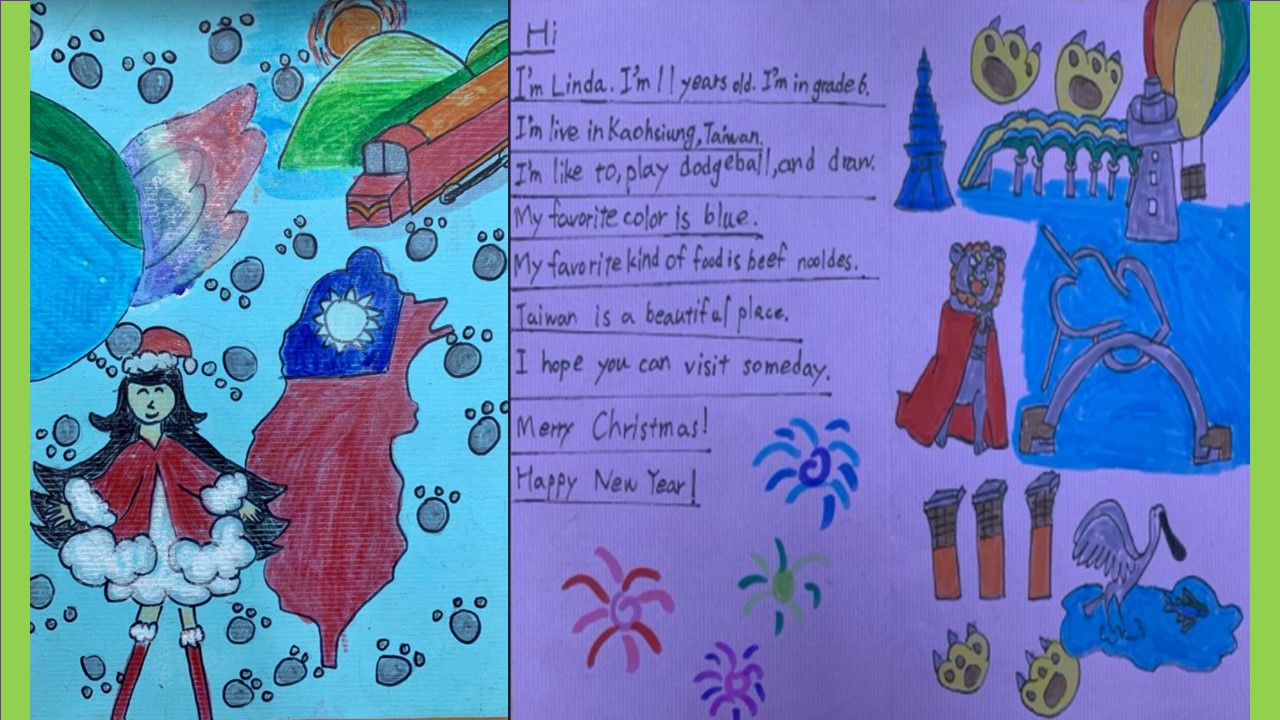 Hi
I'm Linda. I'm 11 years old. I'm in grade 6.
I'm live in Kaohsiung, Taiwan.
I'm like to, play dodgeball, and draw.
My favorite color is blue.
My favorite kind of food is beef nooldes.
Taiwan is a beautiful place.
I hope you can visit someday.
Merry Christmas!
Happy New Year!